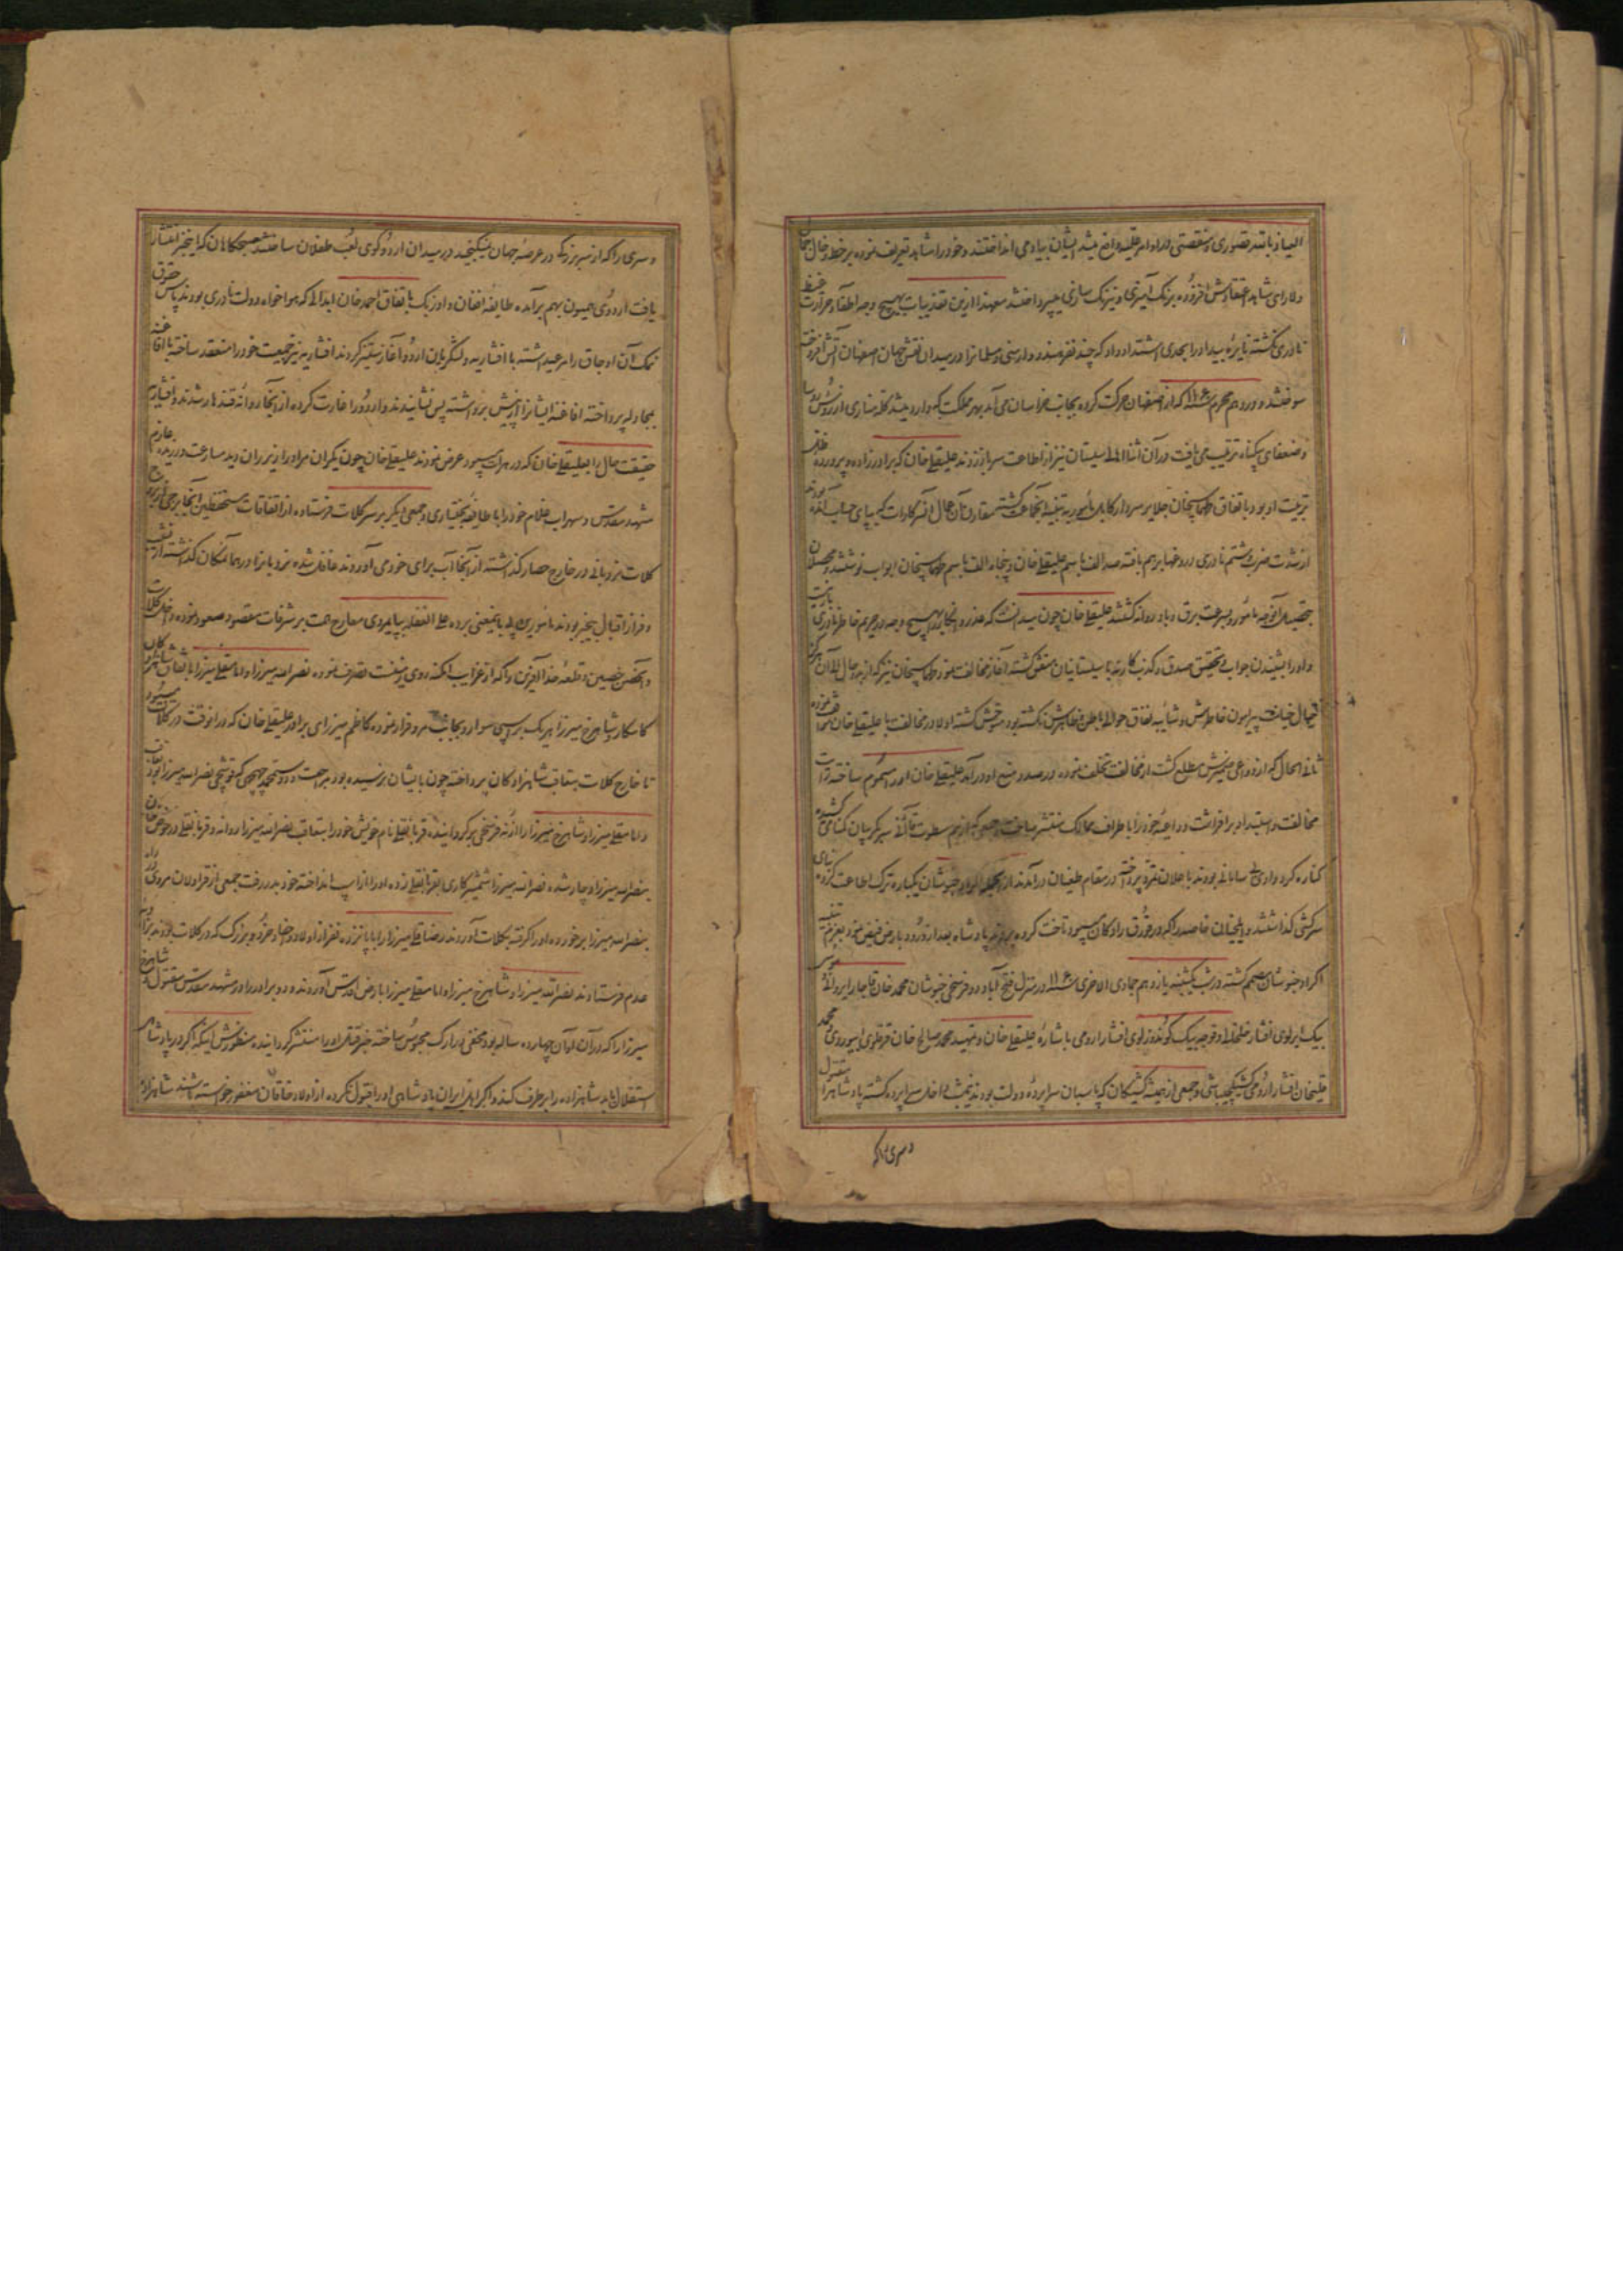 العیاذ بالله قصوری و منقصتی در اوامر قلیله واقع میشد ایشان بیاد می انداختند و خود را مشاهد تعریف نموده بر خط و خال
ولارای شاهد افزوده برنک آمیزی و نیرنک سازی میپرداختند معهذا ازین تعذیبات بهیچ وجه اطفاء حرارت غیظ
نادری نکشته نایره بیداد را بحدی اشتداد داد که چند نفر هندو و ارمنی و مسلمانرا در میدان نقش جهان اصفهان آتش افروخته
سوختند و در دهم محرم سنه ۱۱۶۰ که از اصفهان حرکت کرده بجانب خراسان می آمد بهر مملکت که وارد میشد کله مناری از رؤس روسا
و ضعفای بیکناه ترتیب می یافت در آن اثنا اهالی سیستان نیز از اطاعت سر باز زدند علیقلی خان که برادرزاده و پرورده
تربیت او بود با تفاق طهماسبخان جلایر سردار کابل مأمور به تنبیه آنجماعت کشته مقارن آن عمال آنسر کار از که بپای حساب آمده
از شدت ضرب و شتم نادری در و خبا بر هم بافته صد الف باسم علیقلی خان و پنجاه الف باسم طهماسبخان ابواب نوشتند و محصلان
بتحصیل آنوجه مأمور و بسرعت برق و باد روانه کشتند علیقلی خان چون میدانست که عذر و انکار بهیچ وجه در حریم خاطر نادری
و او را بشنیدن جواب تحقیق صدق و کذب کار نه با سیستانیان متفق کشته آغاز مخالفت نمود و طهماسبخان نیز که از بدو حال الی آن
خیال خیانت پیرامون خاطرش و شایبه نفاق حوالی باطن و ظاهرش نکشته بود متوحش کشته اولا در مخالفت با علیقلی خان
ثانی الحال که از دواعی ضمیرش مطلع کشت از مخالفت تخلف نموده در صدد منع او در آمد علیقلی خان او را مسموم ساخته رایت
مخالفت و استبداد بر افراشت و داعیه خود را با طراف ممالک منتشر ساخت جمعی که از بیم سطوت قاآنی سر بکریبان کمنامی کشیده
کناره کرد وادی بی سامانی بودند با علان تمرد پرداخته در مقام طغیان درآمدند از جمله اکراد خبوشان یکباره ترک اطاعت کرده پای
سرکشی کذاشتند و ایلخیان خاصه را که در خورق رادکان میبود تاخت کرده بردند پادشاه بعد از ورود بارض فیض نمود بعزم تنبیه
اکراد خبوشان مصمم کشته در شب یکشنبه یازدهم جمادی الاخری سنه ۱۱۶۰ در منزل فتح آباد دو فرسخی خبوشان محمد خان قاجار ایروانی و موسی
بیک ایرلوی افشار خلخالی و قوجه بیک کوندوزلوی افشار ارومی باشاره علیقلی خان و تمهید محمد صالح خان قرقلوی ابیوردی و محمد
قلیخان افشار ارومی کشیکچی باشی و جمعی از همیشه کشیکان که پاسبان سراپرده دولت بودند نیمشب داخل سراپرده کشته پادشاه را مقتول
و سری را که
و سری را که از بزرکی در عرصه جهان نمیکنجید در میدان اردو کوی لعب طفلان ساختند صبحکاهان که اینخبر انتشار
یافت اردوی همیون بهم بر آمده طایفه افغان و اوزبک با تفاق احمد خان ابدالی که هوا خواه دولت نادری بودند پاس حقوق
نمک آن اوجاق را مرعی داشته با افشاریه و لشکریان اردو آغاز ستیز کردند افشاریه نیز جمعیت خود را منعقد ساخته با افاغنه
بمجادله پرداخته افاغنه ایشانرا از پیش برداشته پس نشانیدند و اردو را غارت کرده از آنجا روانه قندهار شدند افشاریه
حقیقت حال را بعلیقلی خان که در هرات میبود عرض نمودند علیقلی خان چون یکران مراد را زیر ران دید مسارعت ورزیده عازم
مشهد مقدس و سهراب غلام خود را با طایفه بختیاری و جمعی دیکر بر سر کلات فرستاده از اتفاقات مستحفظین آنجا
کلات نردبانی در خارج حصار کذاشته از آنجا آب برای خود می آوردند غافل شده نردبانرا در هما نمکان کذاشته از نشیب
و فراز اقبال بیخبر بودند مأمورین پی باینمعنی برده علی الغفله بپایمردی معارج همت بر شرفات مقصود صعود نموده داخل کلات
و آنحصن حصین و قلعه خدا آفرین را که از غرایب امکنه روی زمینست تصرف نموده نصرالله میرزا و امامقلی میرزا با
کامکار و شاهرخ میرزا هر یک بر اسبی سوار و بجانب مرو فرار نموده کاظم میرزای برادر علیقلی خان که در انوقت در کلات میبود
تا خارج کلات بتعاقب شاهزادکان پرداخته چون بایشان نرسیده بود مراجعت و دوستمحمد چهچهی که قوشچی نصرالله میرزا بود
و امامقلی میرزا و شاهرخ میرزا را از نه فرسخی برکردانیده قربانقلی نام خویش خود را بتعاقب نصرالله میرزا روانه و قربانقلی در حوض خان
بنصرالله میرزا دچار شده نصرالله میرزا شمشیر کاری بقربانقلی زده او را از اسب انداخته خود بدر رفت جمعی از قراولان مروی در راه
بنصرالله میرزا بر خورده او را کرفته بکلات آوردند رضاقلی میرزا را با پانزده نفر از اولاد و احفاد خرد و بزرک که در کلات بودند
عدم فرستادند نصرالله میرزا و شاهرخ میرزا و امامقلی میرزا با ارض اقدس آورده دو برادر را در مشهد مقدس مقتول و شاهرخ
میرزا را که در آن اوان چهارده ساله بود مخفی در ارک محبوس ساخته خبر قتل او را منتشر کردانیده منظورش اینکه اکر در پادشاهی
استقلال یابد شاهزاده را بر طرف کند و اکر اهل ایران پادشاهی او را قبول نکرده از اولاد خاقان مغفور خواسته باشند شاهزاده